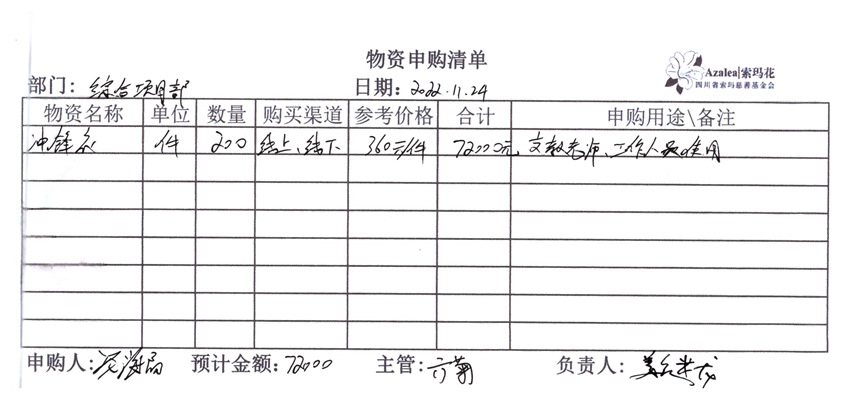 物资申购清单
Azalea|索玛花
四川省索玛慈善基金会
部门：综合项目部 日期：2022.11.24
物资名称 单位 数量 购买渠道 参考价格 合计 申购用途\备注
冲锋衣 件 200 线上、线下 360元/件 72000元 支教老师、工作人员使用
申购人： 预计金额：72000 主管： 负责人：